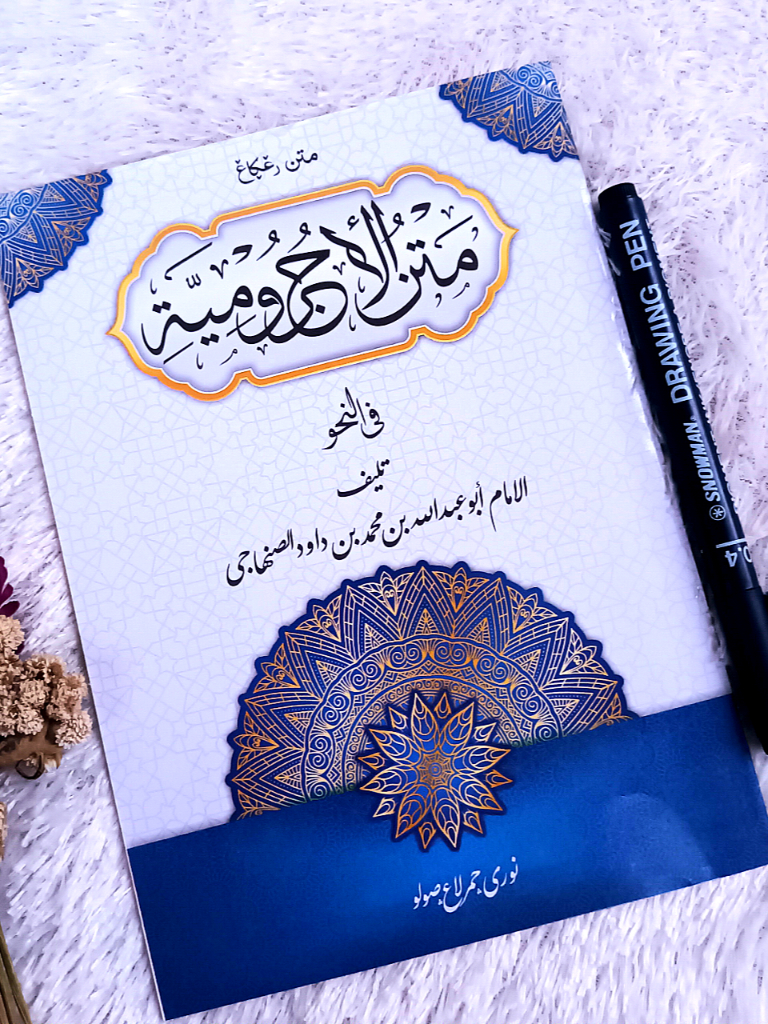 متن رڠكاڠ
مَتْنُ الأجُرُومِيَّةِ
فى النحو
تليف
الامام أبو عبد الله بن محمد بن داود الصنهاجي
صولو
SNOWMAN. DRAWING PEN
0.4